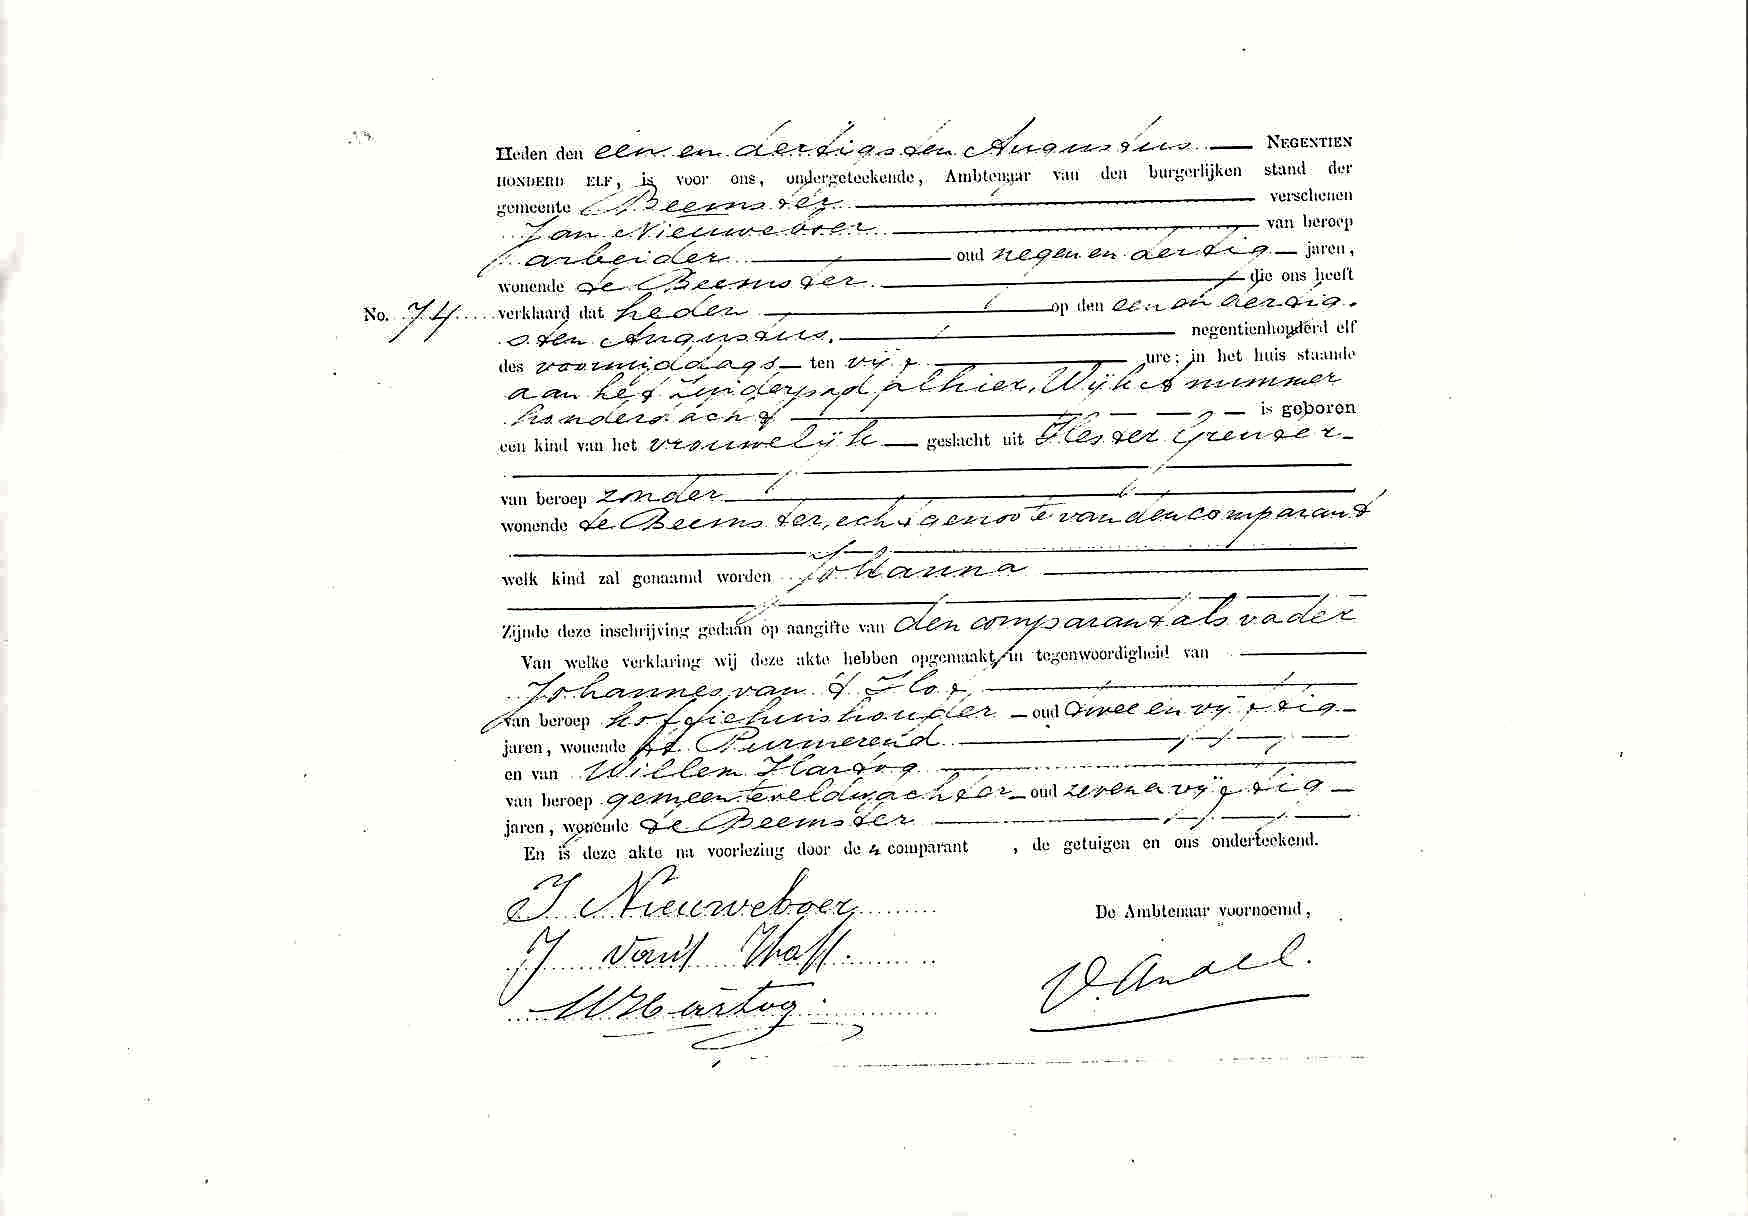 Heden den een en dertigsten Augustus NEGENTIEN
HONDERD ELF, is voor ons, ondergeteekende, Ambtenaar van den burgerlijken stand der
gemeente Beemster verschenen
Jan Nieuweboer van beroep
arbeider oud negen en dertig jaren,
wonende te Beemster die ons heeft
No. 74 verklaard dat heden op den een en dertig-
sten Augustus, negentienhonderd elf
des voormiddags ten vijf ure; in het huis staande
aan het Zuiderpad alhier, Wijk A nummer
honderd acht is geboren
een kind van het vrouwelijk geslacht uit Hester
van beroep zonder
wonende te Beemster, echtgenoote van den comparant
welk kind zal genaamd worden Johanna
Zijnde deze inschrijving gedaan op aangifte van den comparant als vader
Van welke verklaring wij deze akte hebben opgemaakt, in tegenwoordigheid van
Johannes van 't Hof,
van beroep koffiehuishouder oud twee en vijftig
jaren, wonende te Purmerend
en van Willem Hartog
van beroep gemeenteveldwachter oud zeven en vijftig
jaren, wonende te Beemster
En is deze akte na voorlezing door de n comparant , de getuigen en ons onderteekend.
J Nieuweboer
De Ambtenaar voornoemd,
J van't Hoff.
W Hartog.